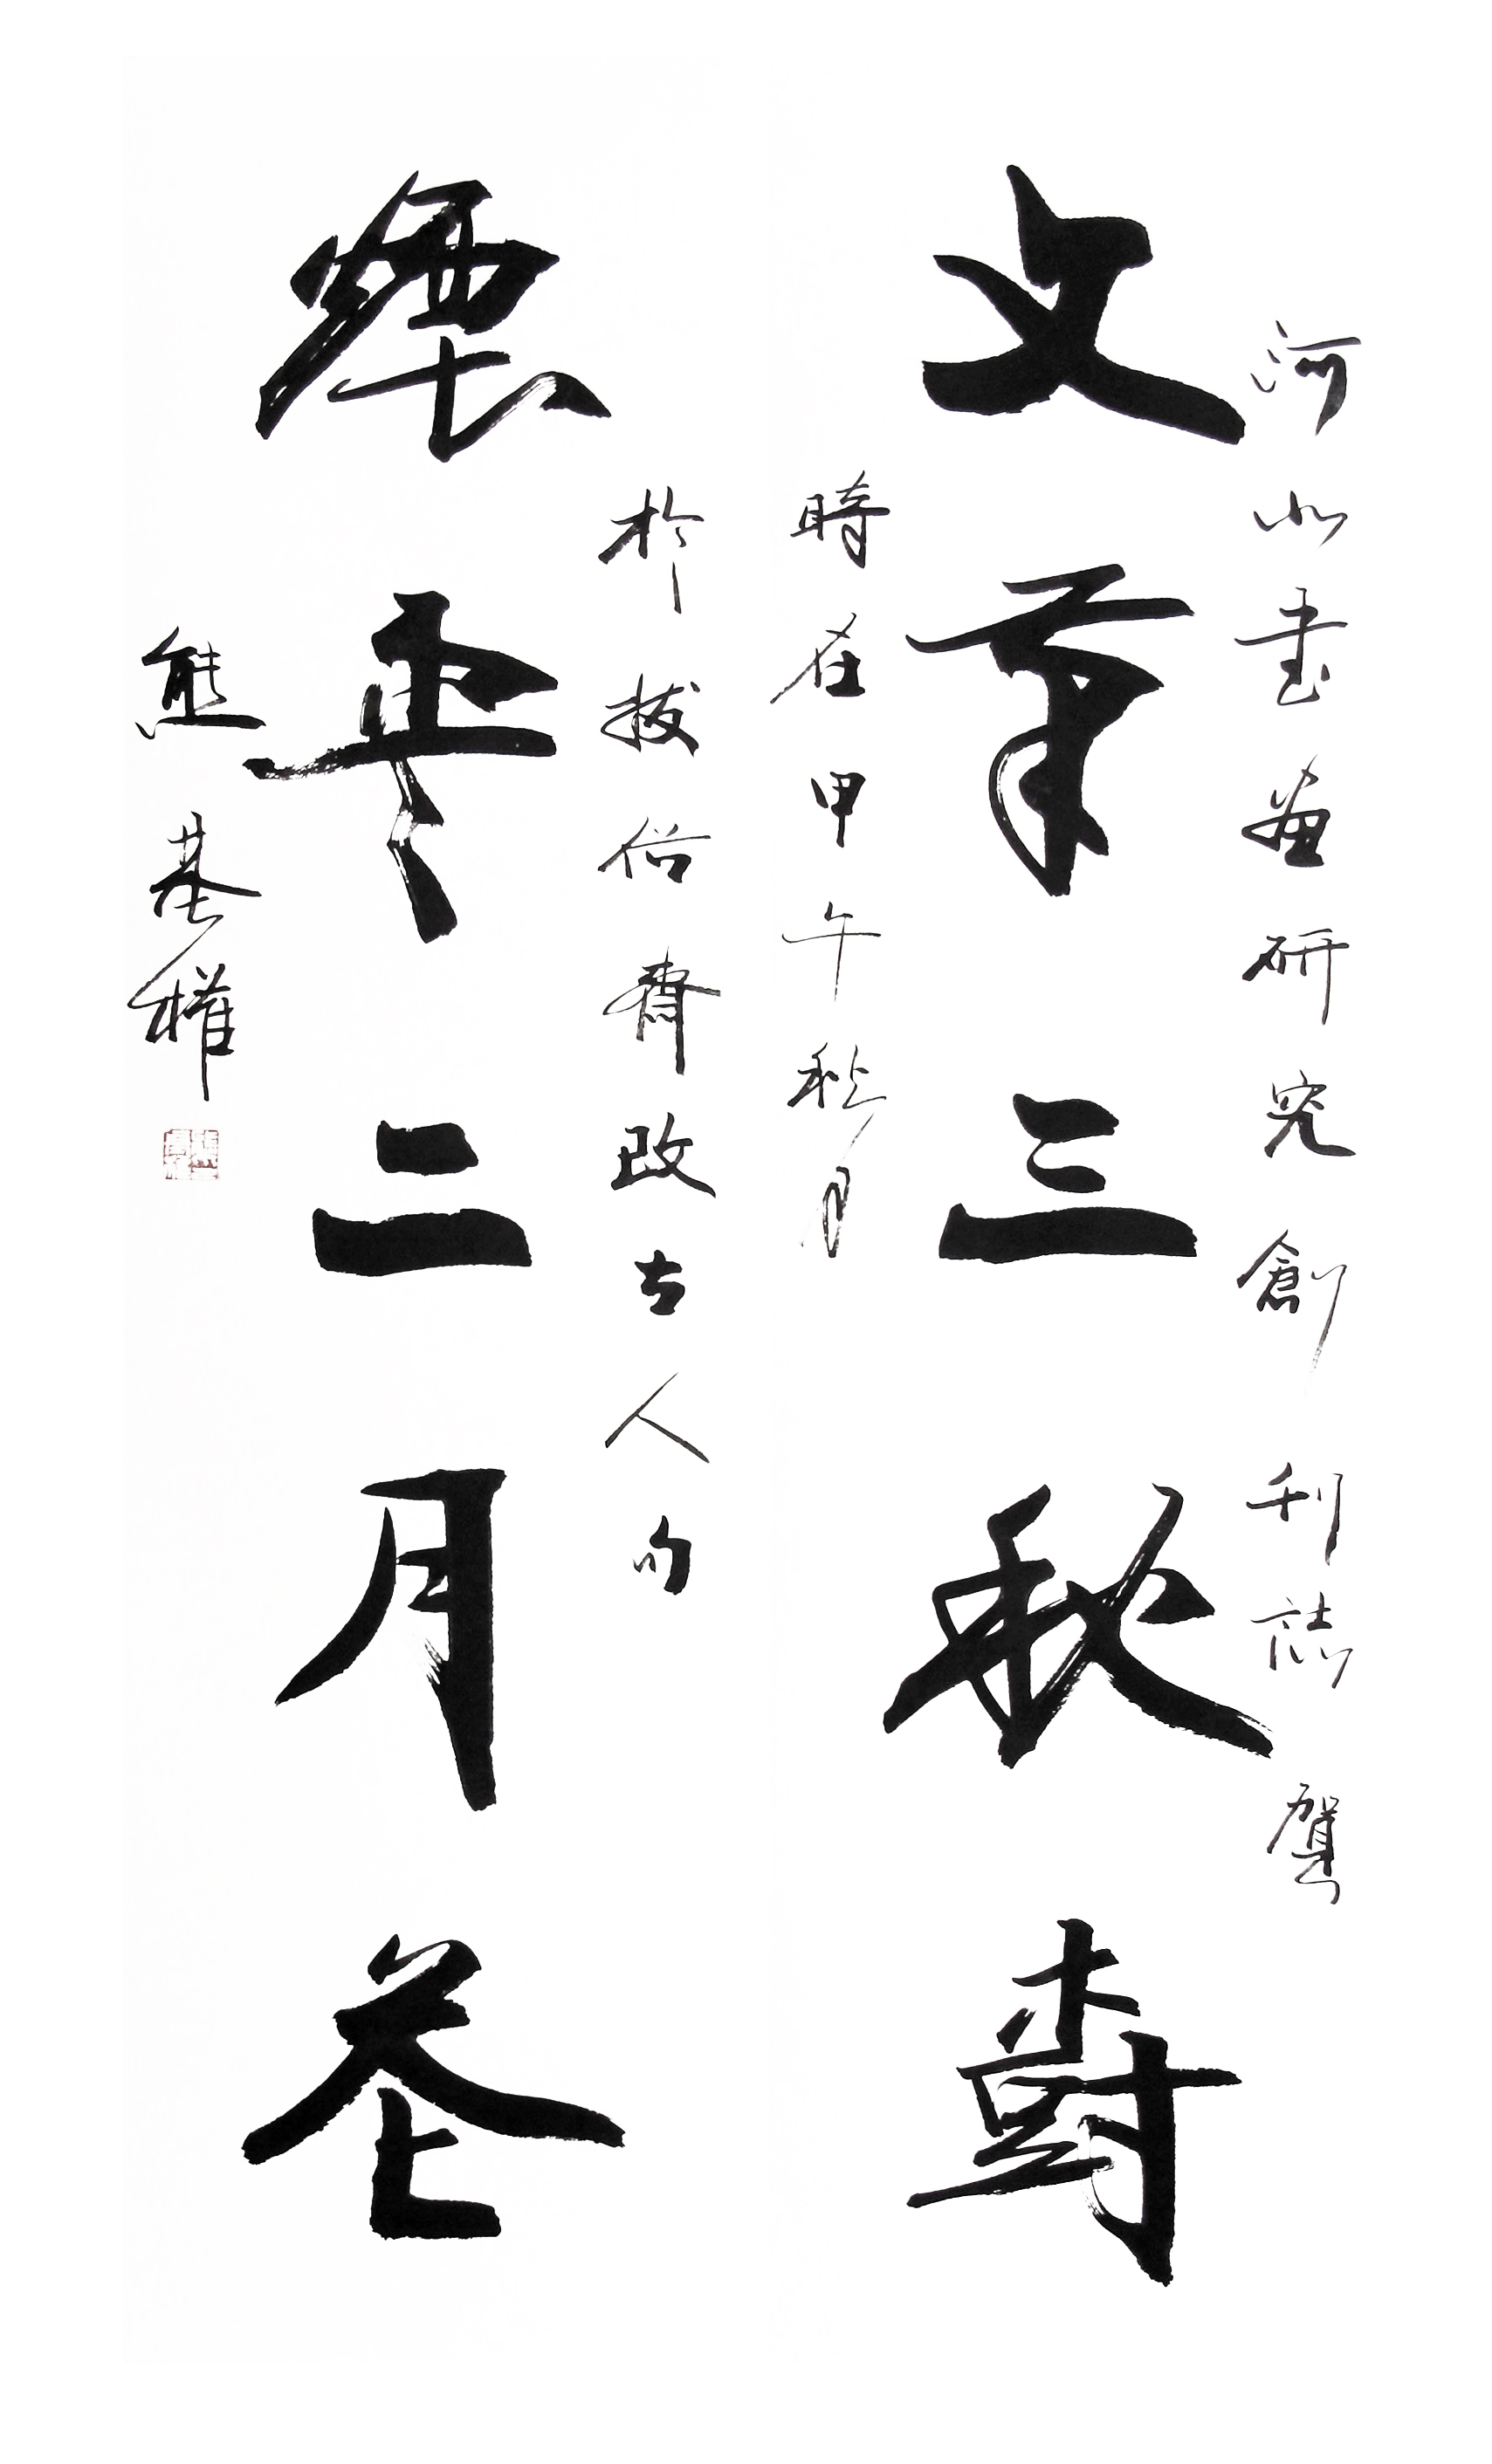 河北書畫研究創刊誌賀
文章三秋樹
時在甲午秋月
於拔俗齋改古人句
煙雲二月花
熊基權